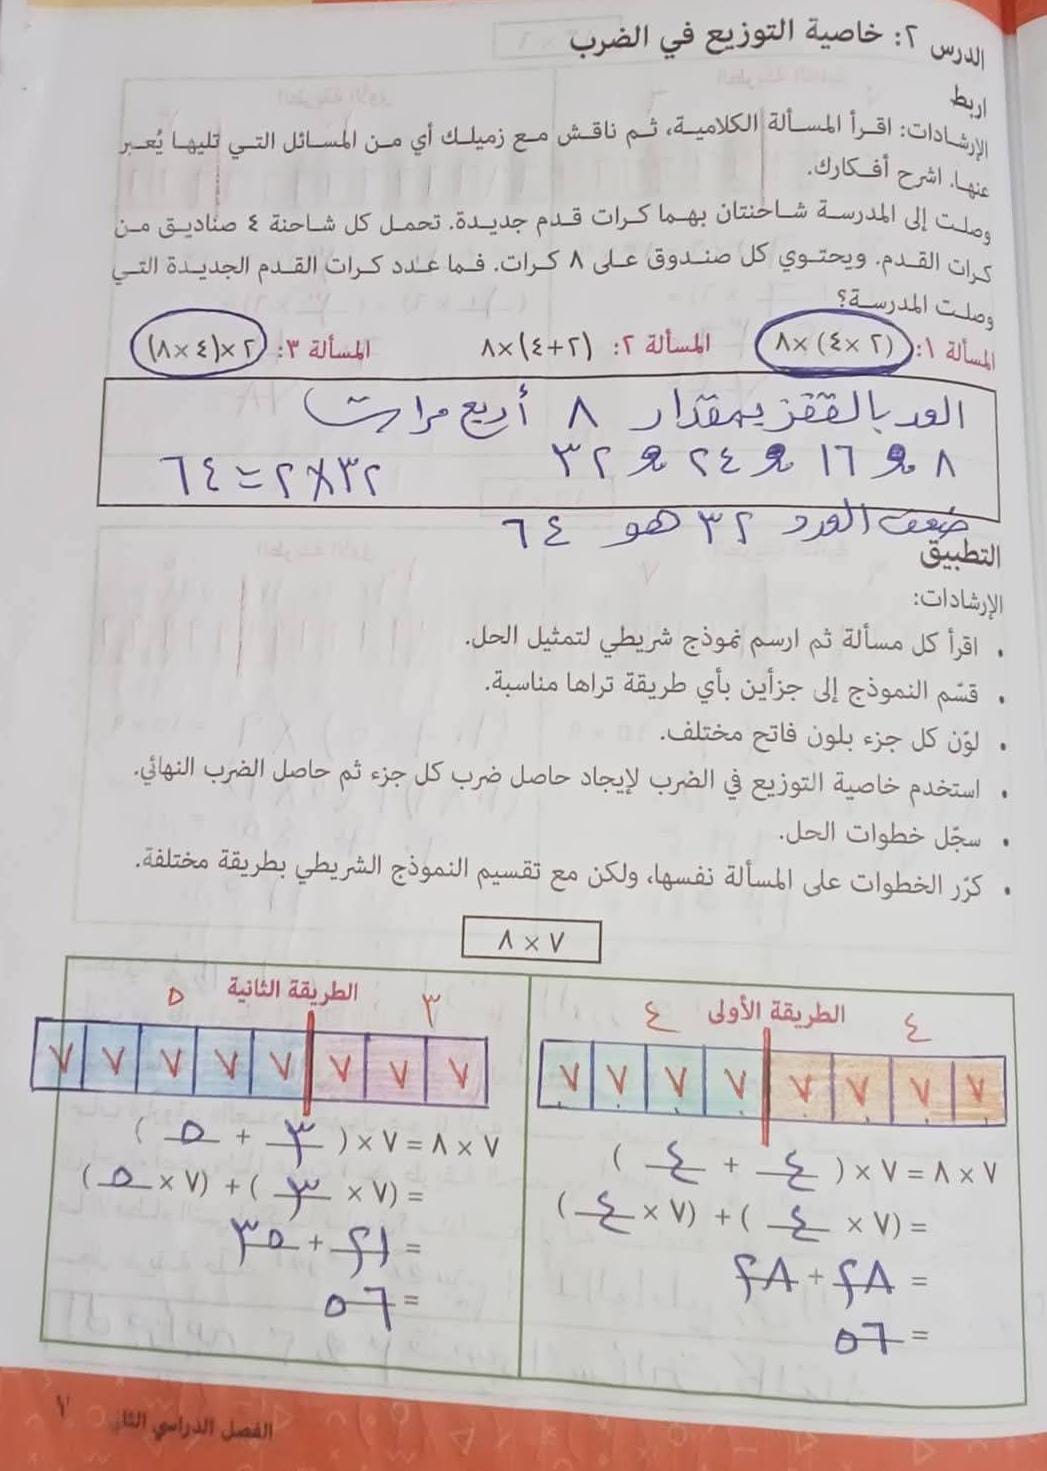 الدرس ٢: خاصية التوزيع في الضرب
اربط
الإرشادات: اقرأ المسألة الكلامية، ثم ناقش مع زميلك أي من المسائل التي تليها يُعبر
عنها. اشرح أفكارك.
وصلت إلى المدرسة شاحنتان بهما كرات قدم جديدة. تحمل كل شاحنة ٤ صناديق من
كرات القدم. ويحتوي كل صندوق على ٨ كرات. فما عدد كرات القدم الجديدة التي
وصلت المدرسة؟
المسألة ١: (٢ × ٤) × ٨ المسألة ٢: (٢+٤) × ٨ المسألة ٣: ٢ × (٤ × ٨)
العد بالقفز بمقدار ٨ أربع مرات
٨ و ١٦ و ٢٤ و ٣٢ ٣٢ × ٢ = ٦٤
ضعف العدد ٣٢ هو ٦٤
التطبيق
الإرشادات:
• اقرأ كل مسألة ثم ارسم نموذج شريطي لتمثيل الحل.
• قسّم النموذج إلى جزأين بأي طريقة تراها مناسبة.
• لوّن كل جزء بلون فاتح مختلف.
• استخدم خاصية التوزيع في الضرب لإيجاد حاصل ضرب كل جزء ثم حاصل الضرب النهائي.
• سجّل خطوات الحل.
• كرّر الخطوات على المسألة نفسها، ولكن مع تقسيم النموذج الشريطي بطريقة مختلفة.
٧ × ٨
الطريقة الأولى
٤ ٤
٧ ٧ ٧ ٧ ٧ ٧ ٧ ٧
٧ × ٨ = ٧ × ( ٤ + ٤ )
= (٧ × ٤ ) + (٧ × ٤ )
= ٢٨ + ٢٨
= ٥٦
الطريقة الثانية
٣ ٥
٧ ٧ ٧ ٧ ٧ ٧ ٧ ٧
٧ × ٨ = ٧ × ( ٣ + ٥ )
= (٧ × ٣ ) + (٧ × ٥ )
= ٢١ + ٣٥
= ٥٦
الفصل الدراسي